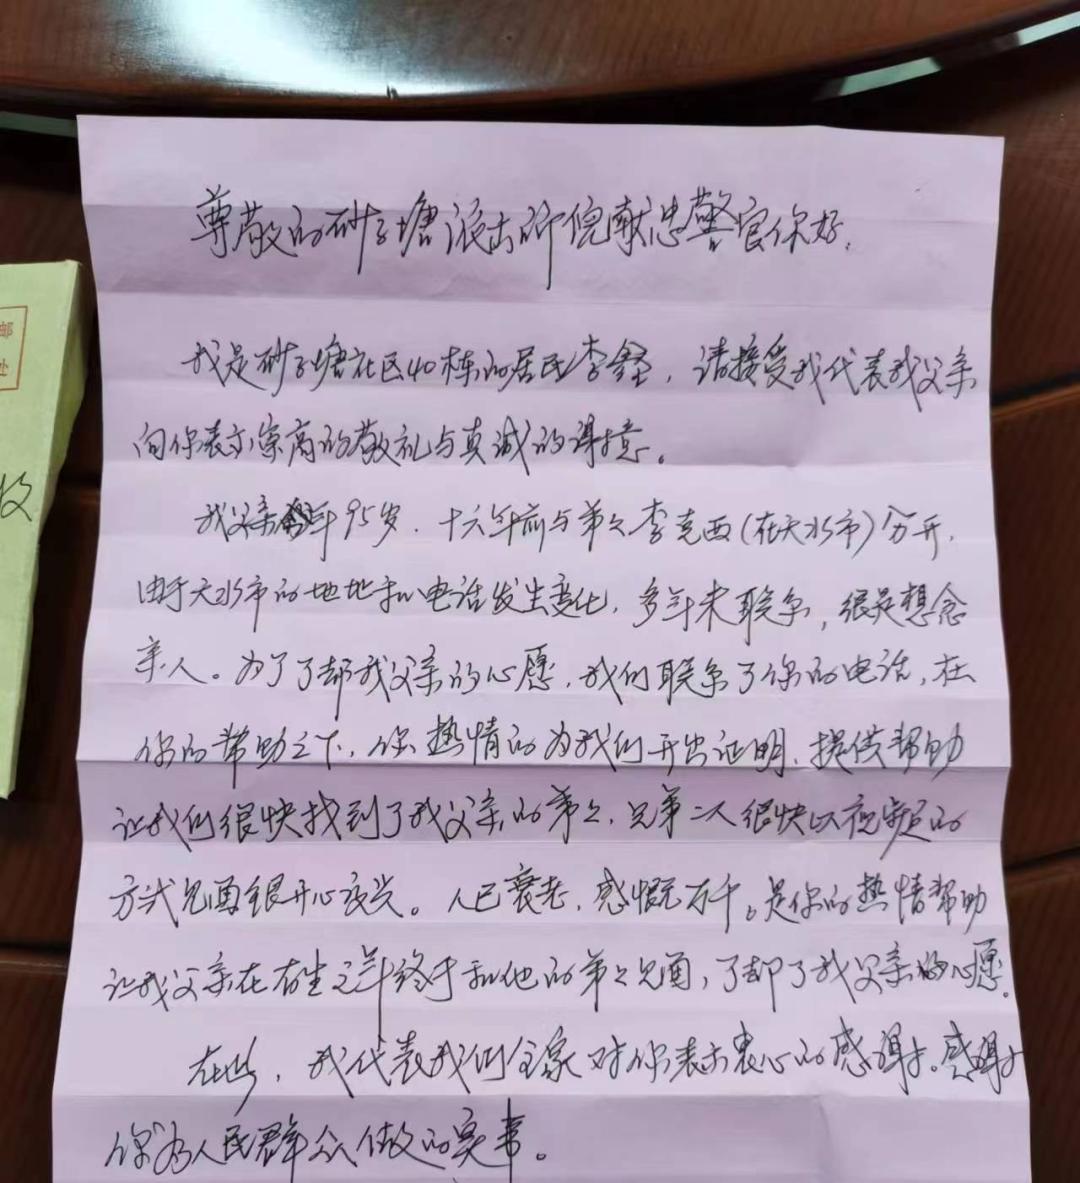 邮
处
收
尊敬的砂子塘派出所倪献忠警官你好,
我是砂子塘社区40栋的居民李, 请接受我代表我父亲
向你表示崇高的敬礼与真诚的谢意。
我父亲今年95岁, 十六年前与弟弟李克西(在天水市)分开,
由于天水市的地址和电话发生变化, 多年未联系, 很是想念
亲人。为了了却我父亲的心愿, 我们联系了你的电话, 在
你的帮助之下, 你热情的为我们开出证明、提供帮助
让我们很快找到了我父亲的弟弟, 兄弟二人很快以视频的
方式见面很开心。人已衰老, 感慨万千。是你的热情帮助
让我父亲在有生之年终于和他的弟弟见面, 了却了我父亲的心愿。
在此, 我代表我们全家对你表示衷心的感谢。感谢
你为人民群众做的实事。